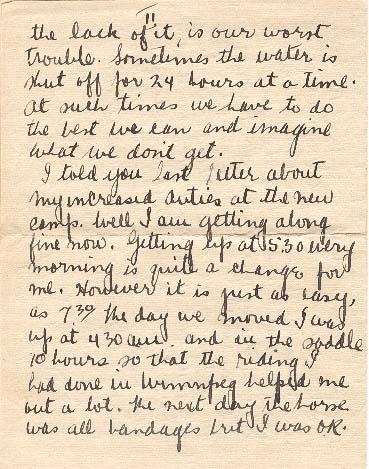 11
the lack of it, is our worst
trouble. Sometimes the water is
shut off for 24 hours at a time.
At such times we have to do
the best we can and imagine
what we don't get.
I told you last letter about
my increased duties at the new
camp. Well I am getting along
fine now. Getting up at 5:30 every
morning is quite a change for
me. However it is just as easy,
as 7.30 The day we moved I was
up at 4 30 am. and in the saddle
10 hours so that the riding I
had done in Winnipeg helped me
out a lot. The next day the horse
was all bandages but I was OK.